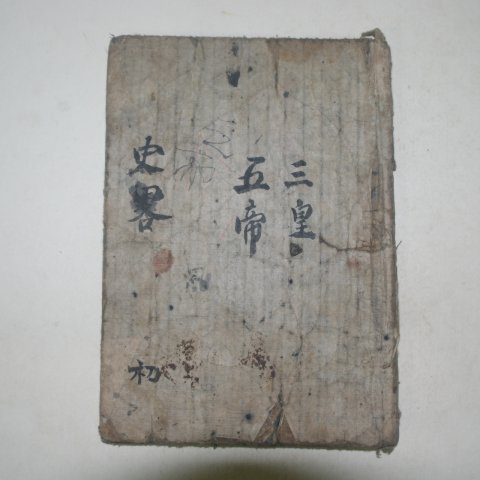 三皇
五帝
史畧
初